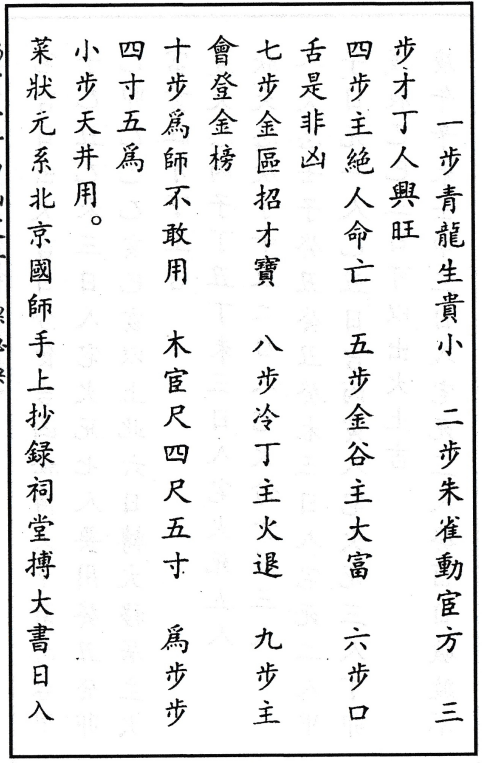 一步青龍生貴小　二步朱雀動宦方　三
步才丁人興旺
四步主絕人命亡　五步金谷主大富　六步口
舌是非凶
七步金區招才寶　八步冷丁主火退　九步主
會登金榜
十步爲師不敢用　木宦尺四尺五寸　爲步步
四寸五爲
小步天井用。
菜狀元系北京國師手上抄録祠堂搏大書日入